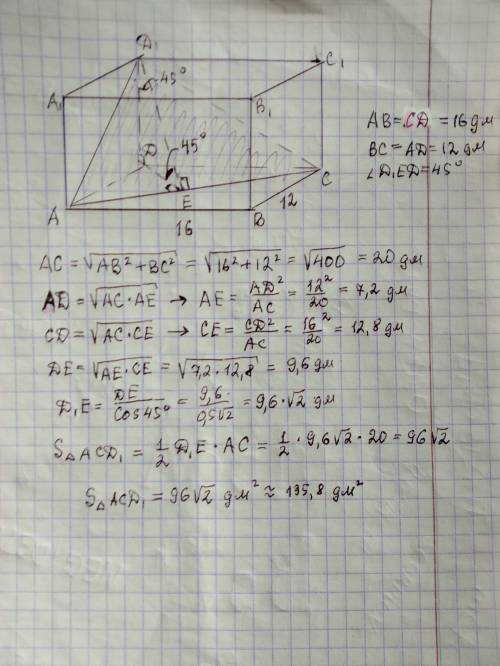 D₁
C₁
45°
A₁
B₁
45°
D
C
A
E
B
12
16
AB = CD = 16 дм
BC = AD = 12 дм
∠D₁ED = 45°
AC = √(AB² + BC²) = √(16² + 12²) = √400 = 20 дм
AD = √(AC · AE) → AE = AD²/AC = 12²/20 = 7,2 дм
CD = √(AC · CE) → CE = CD²/AC = 16²/20 = 12,8 дм
DE = √(AE · CE) = √(7,2 · 12,8) = 9,6 дм
D₁E = DE/cos45° = 9,6/0,5√2 = 9,6 · √2 дм
S△ACD₁ = 1/2 D₁E · AC = 1/2 · 9,6√2 · 20 = 96√2
S△ACD₁ = 96√2 дм² ≈ 135,8 дм²